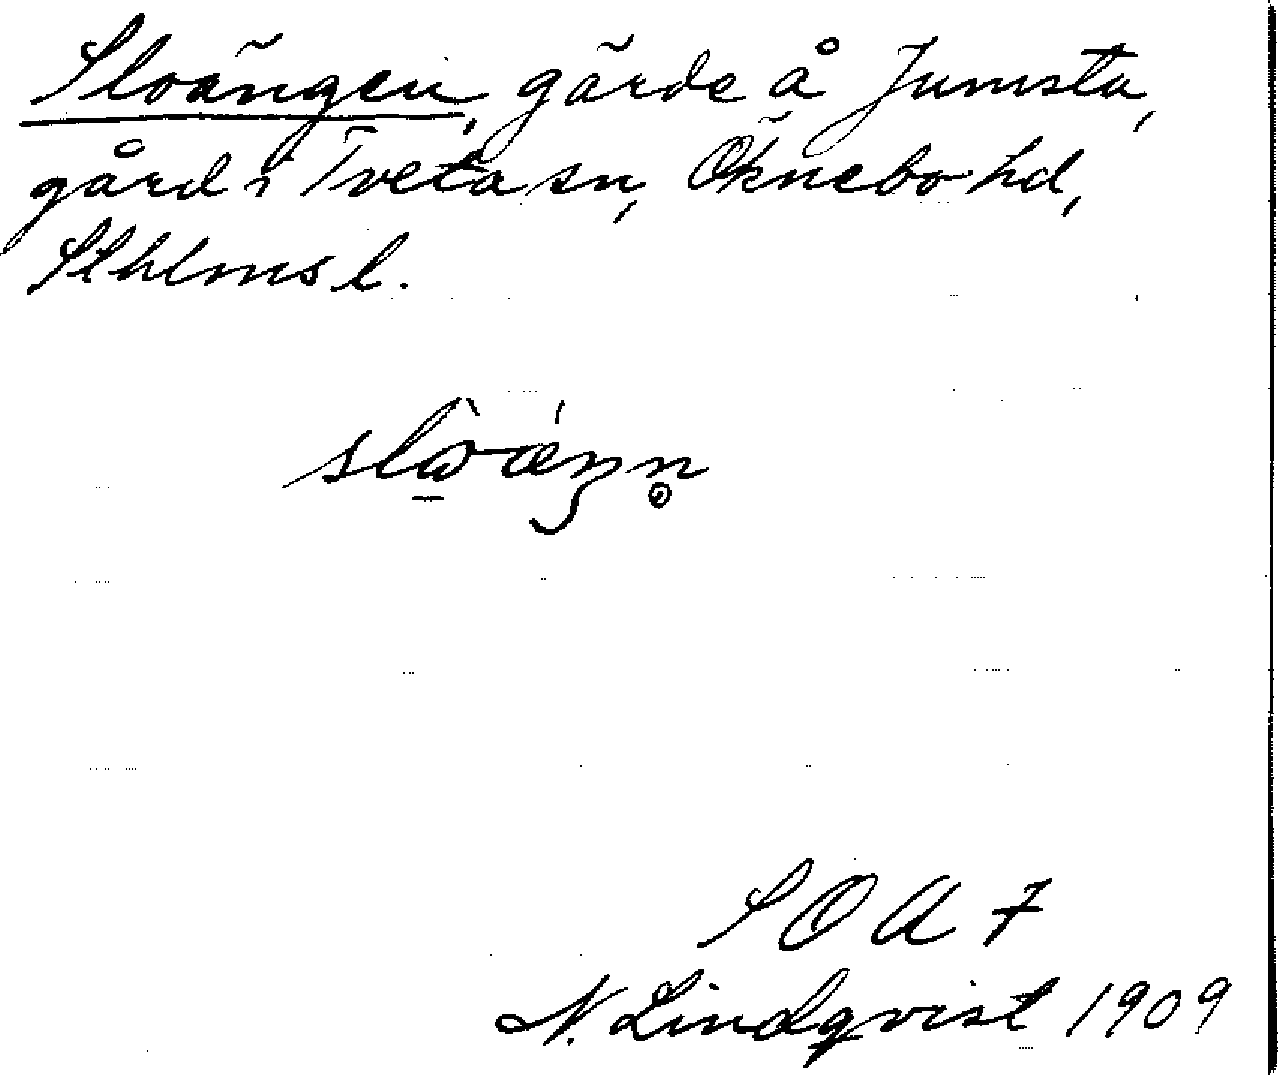 Sloängen, gärde å Jumsta,
gård i Tveta sn, Öknebo hd,
Sthlms l.
SOA 7
N. Lindqvist 1909